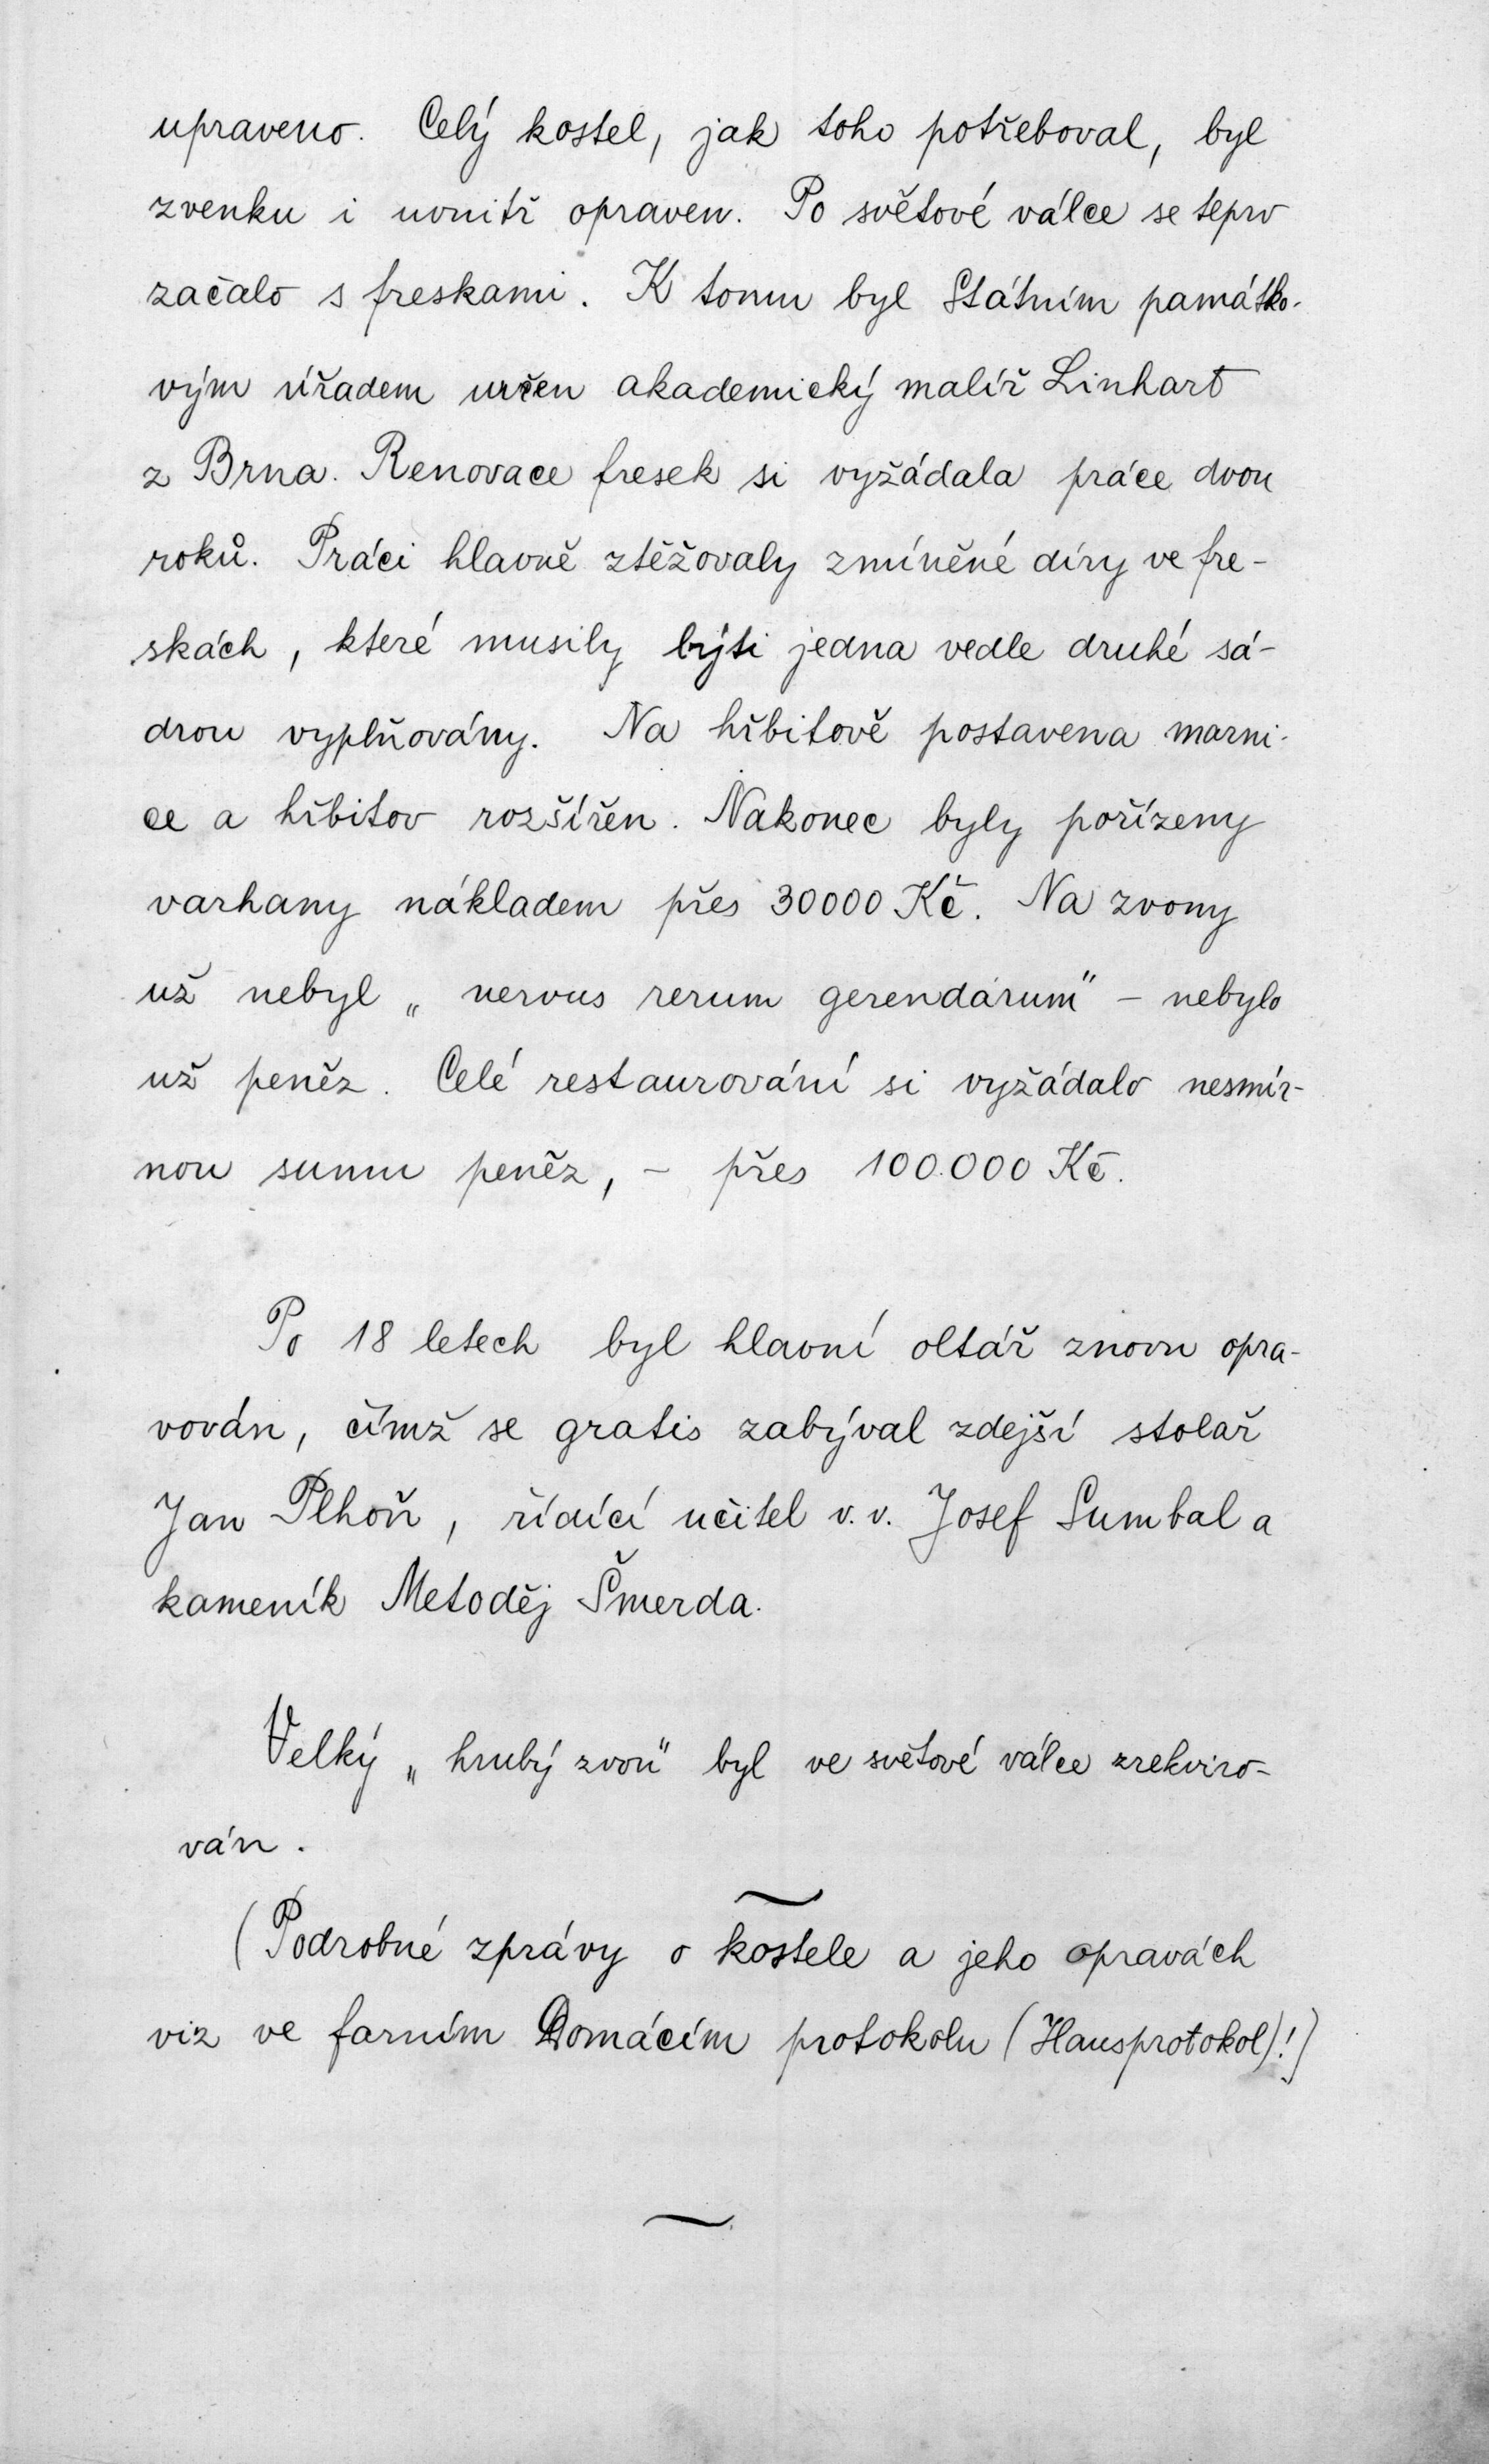 upraveno. Celý kostel, jak toho potřeboval, byl
zvenku i uvnitř opraven. Po světové válce se teprv
začalo s freskami. K tomu byl Státním památko-
vým úřadem určen akademický malíř Linhart
z Brna. Renovace fresek si vyžádala práce dvou
roků. Práci hlavně ztěžovaly zmíněné díry ve fre-
skách, které musily býti jedna vedle druhé sá-
drou vyplňovány. Na hřbitově postavena marni-
ce a hřbitov rozšířen. Nakonec byly pořízeny
varhany nákladem přes 30000 Kč. Na zvony
už nebyl „nervus rerum gerendárum" – nebylo
už peněz. Celé restaurování si vyžádalo nesmír-
nou sumu peněz, – přes 100.000 Kč.
Po 18 letech byl hlavní oltář znovu opra-
vován, čímž se gratis zabýval zdejší stolař
Jan Plhoň, řídící učitel v.v. Josef Sumbal a
kameník Metoděj Šmerda.
Velký „hrubý zvon" byl ve světové válce zrekviro-
ván.
(Podrobné zprávy o kostele a jeho opravách
viz ve farním Domácím protokolu (Hausprotokol)!)